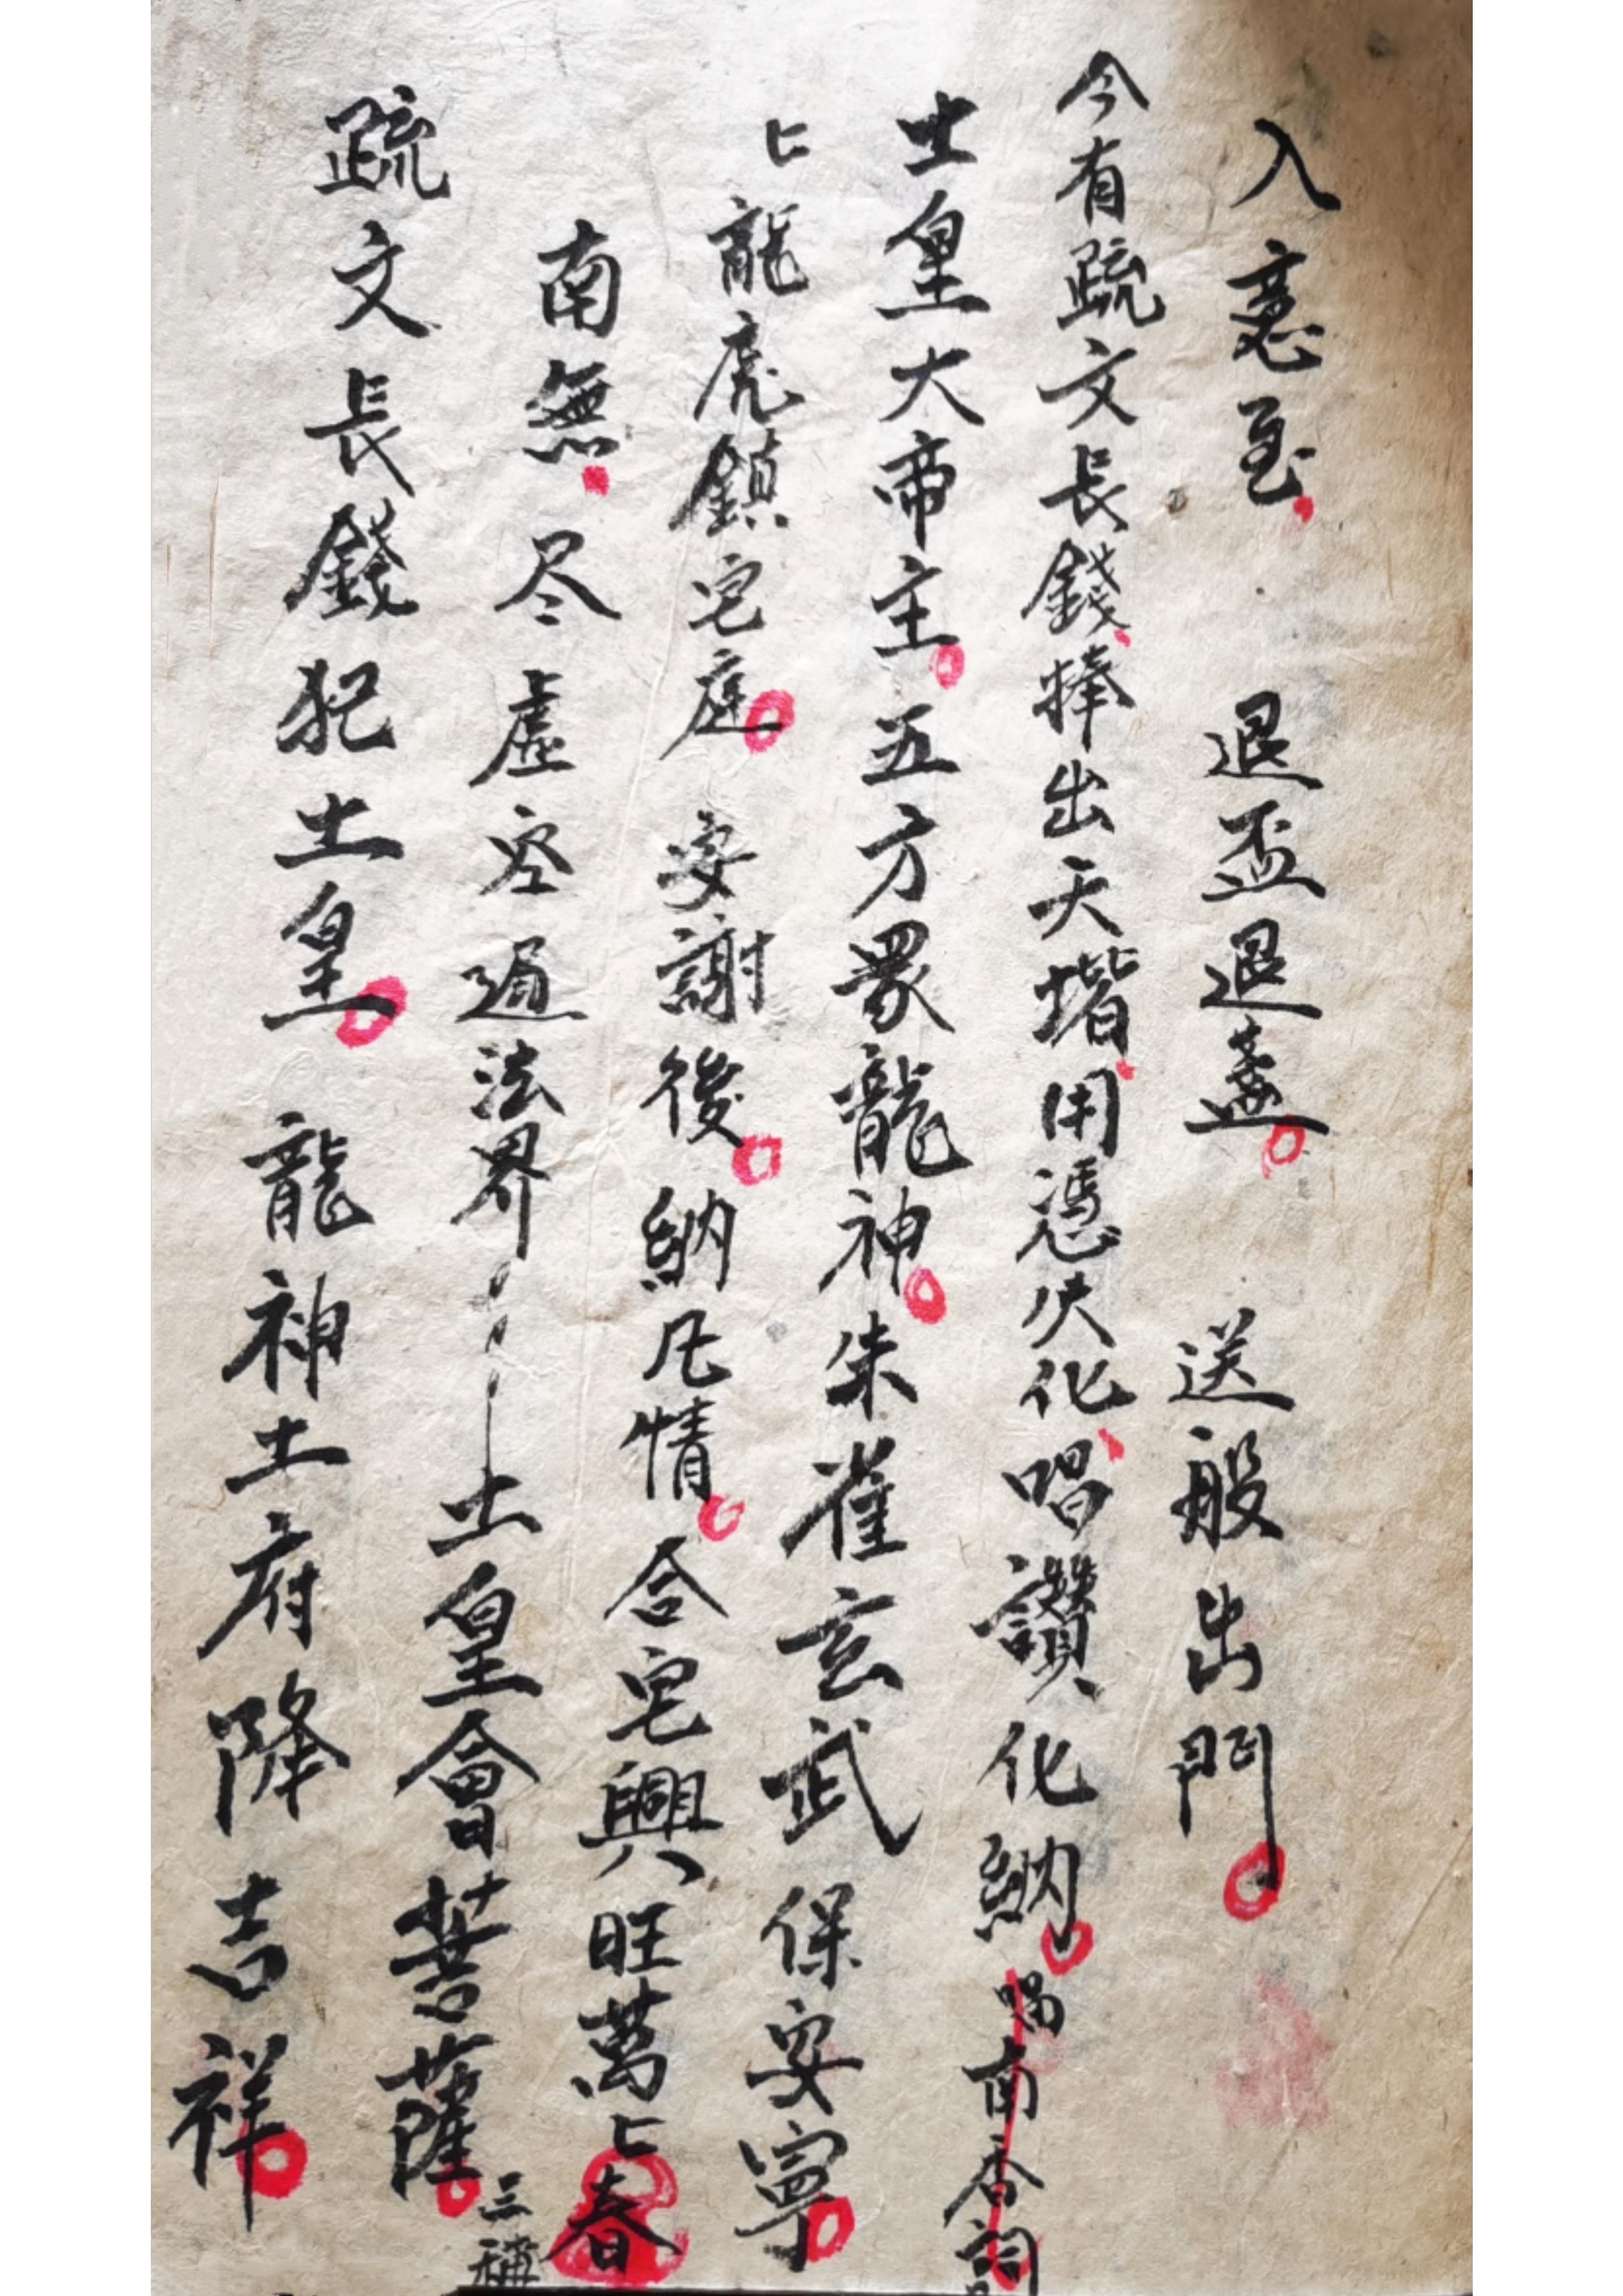 入意至 退盃退盞 送般出門
今有疏文長錢捧出天堦用憑火化唱讚化納唱南香詞
土皇大帝主五方眾龍神朱雀玄武保安寧
匕龍虎鎮宅庭安謝後納凡情合宅興旺萬匕春
南無尽虛空過法界土皇會菩薩三稱
疏文長錢犯土皇龍神土府降吉祥